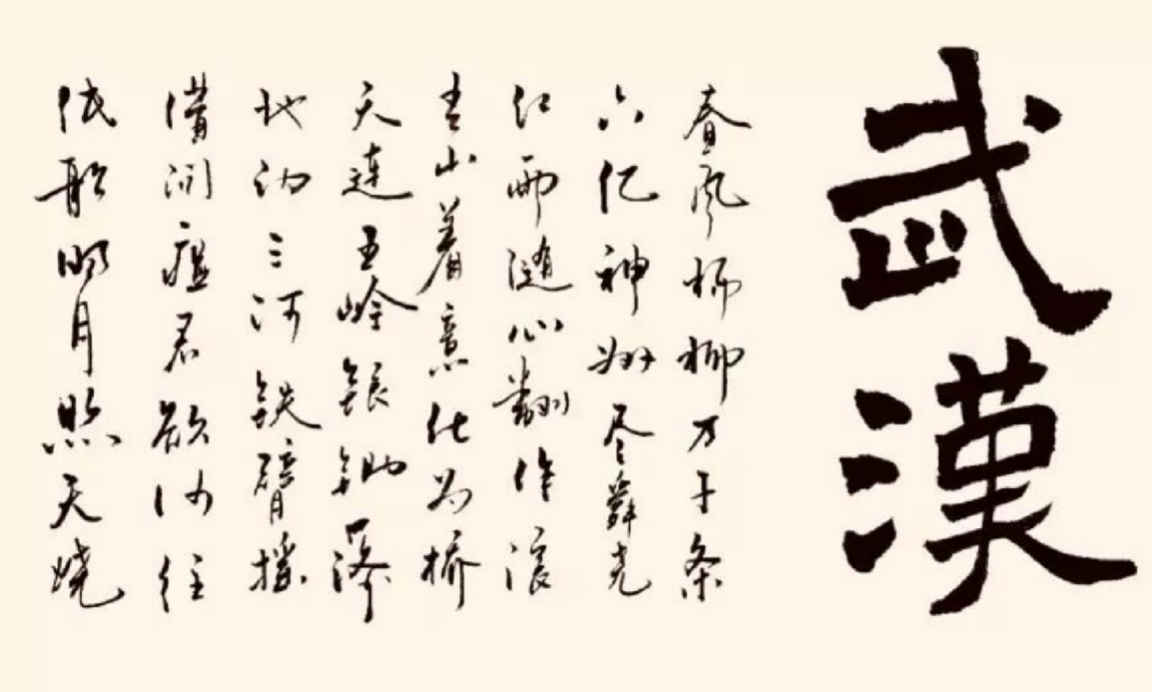 武漢
春风杨柳万千条
六亿神州尽舜尧
红雨随心翻作浪
青山着意化为桥
天连五岭银锄落
地动三河铁臂摇
借问瘟君欲何往
纸船明月照天烧